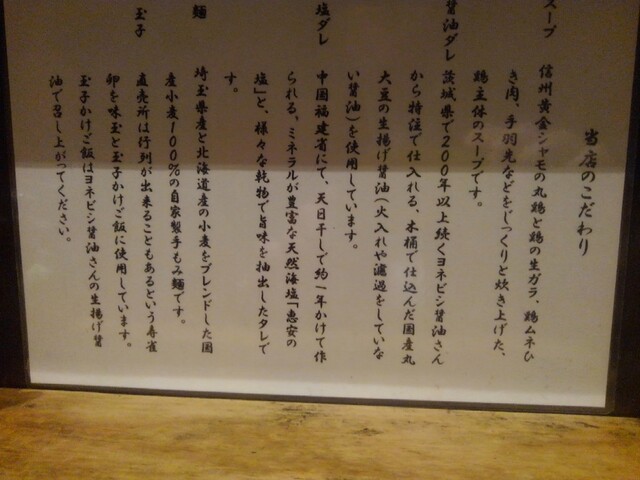 当店のこだわり
スープ　信州黄金シャモの丸鶏と鶏の生ガラ、鶏ムネひ
き肉、手羽先などをじっくりと炊き上げた、
鶏主体のスープです。
醤油ダレ　茨城県で200年以上続くヨネビシ醤油さん
から特注で仕入れる、木桶で仕込んだ国産丸
大豆の生揚げ醤油(火入れや濾過をしていな
い醤油)を使用しています。
塩ダレ　中国福建省にて、天日干しで約一年かけて作
られる、ミネラルが豊富な天然海塩「恵安の
塩」と、様々な乾物で旨味を抽出したタレで
す。
麺　埼玉県産と北海道産の小麦をブレンドした国
産小麦100%の自家製手もみ麺です。
玉子　直売所は行列が出来ることもあるという寿雀
卵を味玉と玉子かけご飯に使用しています。
玉子かけご飯はヨネビシ醤油さんの生揚げ醤
油で召し上がってください。